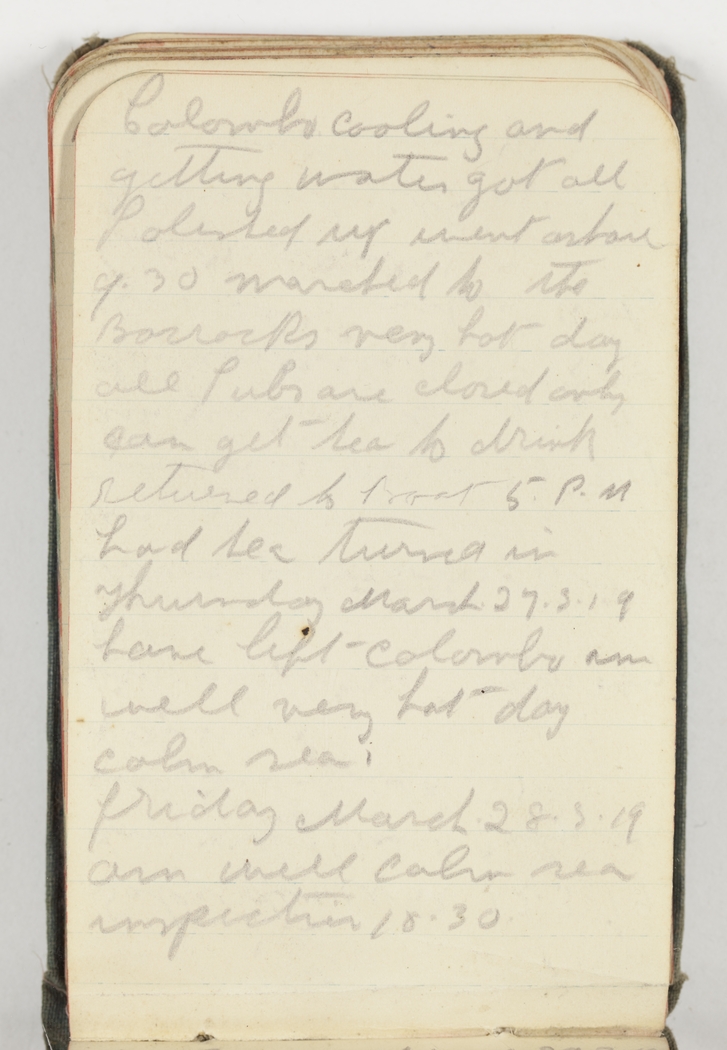 Colombo cooling and
getting water got all
Polished up went ashore
9.30 marched to the
Barracks very hot day
all Pubs are closed only
can get tea to drink
returned to Boat 5. P. M
had tea turned in
Thursday March 27.3.19
have left Colombo am
well very hot day
calm sea.
friday March 28.3.19
am well calm sea
inspection 10.30